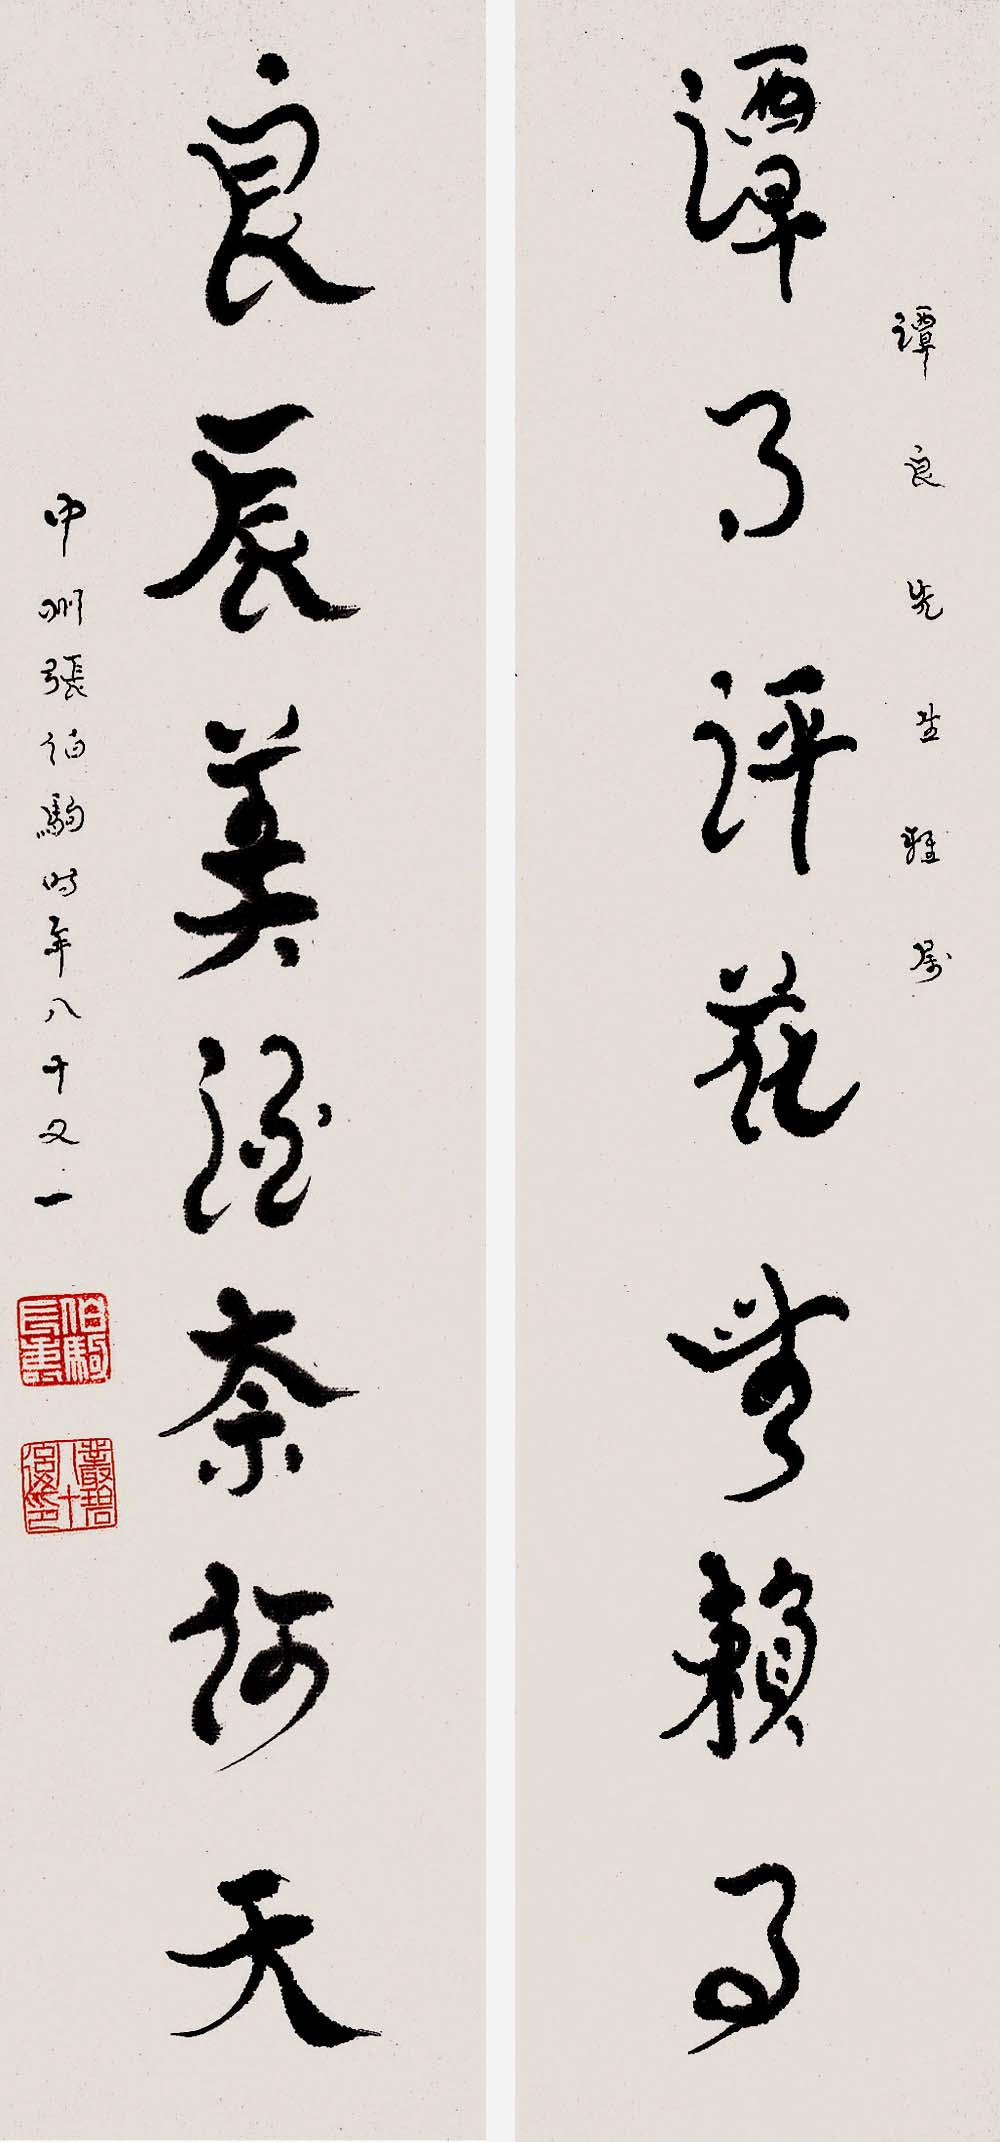 譚良先生雅屬
譚月評花無賴事
良辰美酒奈何天
中州張伯駒時年八十又一
伯駒長壽
叢碧八十後印